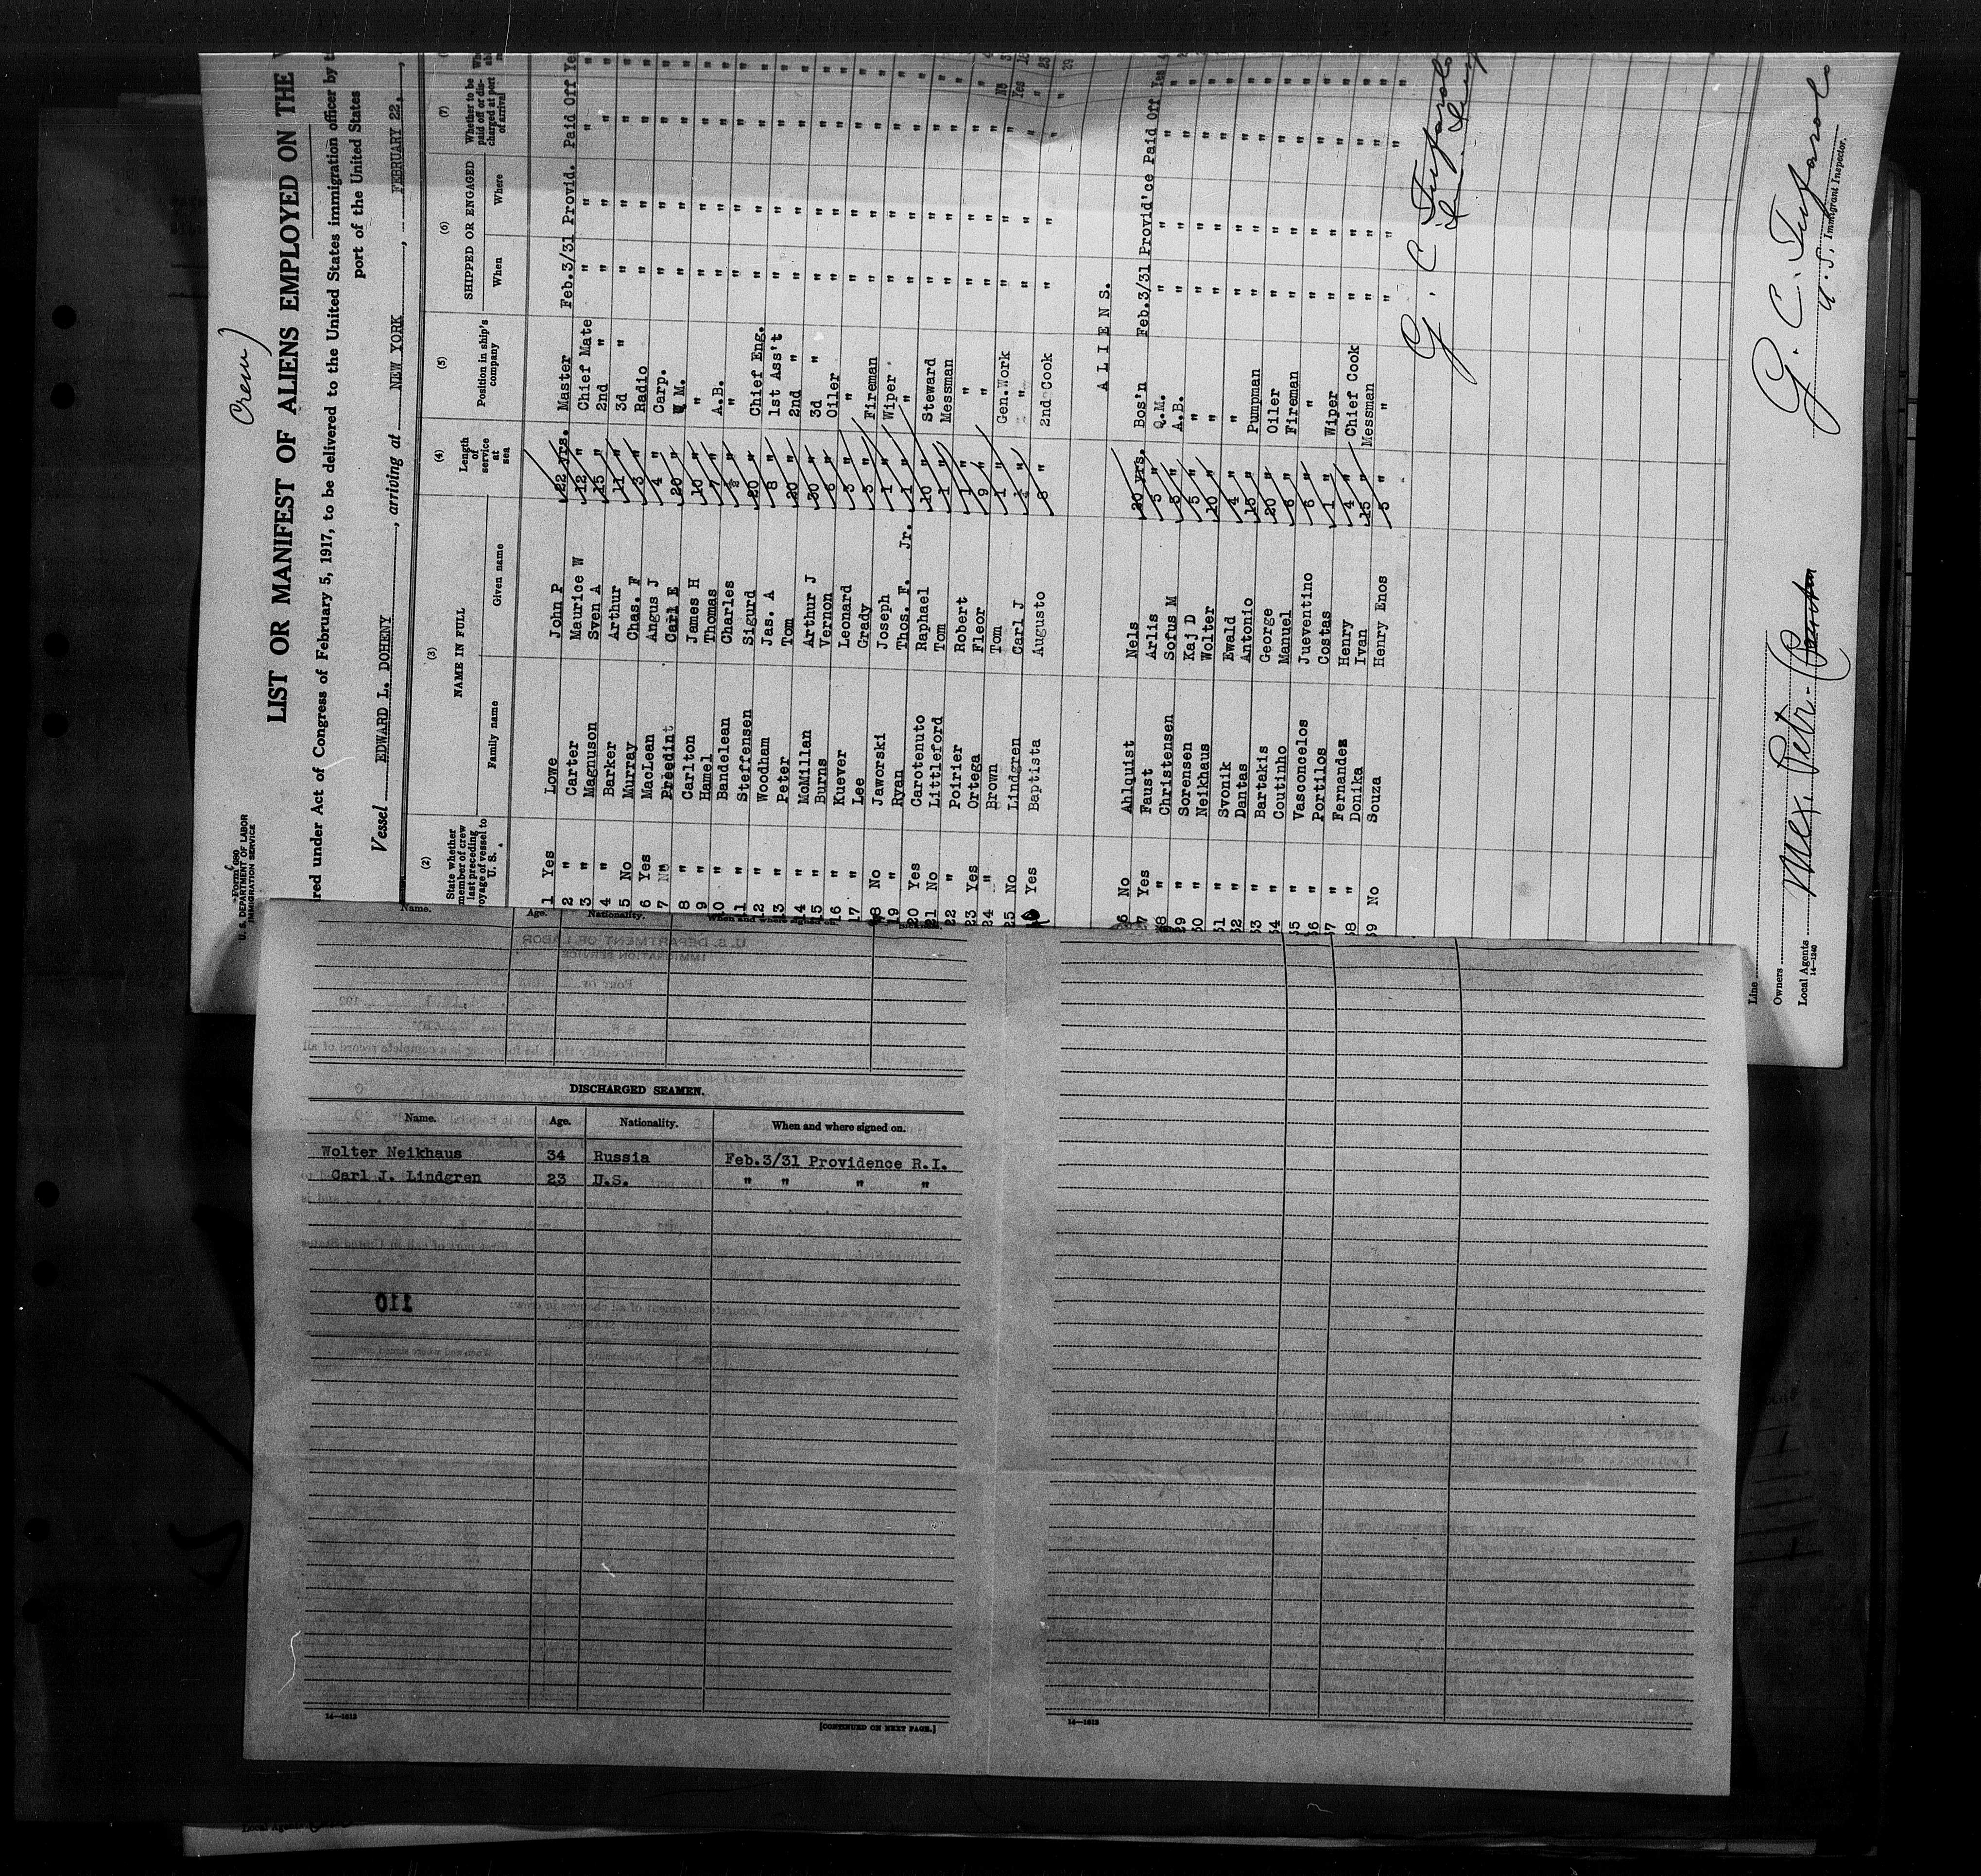 (Crew)
Form 680
U. S. DEPARTMENT OF LABOR
IMMIGRATION SERVICE
LIST OR MANIFEST OF ALIENS EMPLOYED ON THE
red under Act of Congress of February 5, 1917, to be delivered to the United States immigration officer by
port of the United States
Vessel EDWARD L. DOHENY, arriving at NEW YORK, FEBRUARY 22,
(2) (3) (4) (5) (6) (7)
State whether member of crew last preceding voyage of vessel to U. S. NAME IN FULL Length of service at sea Position in ship's company SHIPPED OR ENGAGED Whether to be paid off or discharged at port of arrival
Family name Given name When Where
1 Yes Lowe John P 22 yrs. Master Feb.3/31 Provid. Paid Off Yes
2 " Carter Maurice W 12 " Chief Mate " " "
3 " Magnuson Sven A 15 " 2nd " " " "
4 " Barker Arthur 11 " 3d " " " "
5 No Murray Chas. F 3 " Radio " " "
6 Yes MacLean Angus J 4 " Carp. " " "
7 No Preedint Carl E 20 " Q.M. " " "
8 " Carlton James H 10 " " " " "
9 " Hamel Thomas 7 " A.B. " " "
10 " Bandelean Charles ½ " " " " "
11 " Steffensen Sigurd 20 " Chief Eng. " " "
12 " Woodham Jas. A 8 " 1st Ass't " " "
13 " Peter Tom 20 " 2nd " " " "
14 " McMillan Arthur J 30 " 3d " " " "
15 " Burns Vernon 6 " Oiler " " "
16 " Kuever Leonard 3 " " " " "
17 " Lee Grady 3 " Fireman " " "
18 No Jaworski Joseph 1 " Wiper " " "
19 " Ryan Thos. F. Jr. 1 " " " " "
20 Yes Carotenuto Raphael 10 " Steward " " "
21 No Littleford Tom 1 " Messman " " "
22 " Poirier Robert 1 " " " " "
23 Yes Ortega Fleor 9 " " " " "
24 " Brown Tom 1 " Gen.Work " " "
25 No Lindgren Carl J " " " " "
Yes Baptista Augusto 8 " 2nd Cook " " "
A L I E N S.
26 No Ahlquist Nels 20 yrs. Bos'n Feb.3/31 Provid'ce Paid Off Yes
27 Yes Faust Arlis 5 " Q.M. " " "
28 " Christensen Sofus M 5 " A.B. " " "
29 " Sorensen Kaj D 5 " " " " "
30 " Neikhaus Wolter 10 " " " " "
31 " Svonik Ewald 4 " " " " "
32 " Dantas Antonio 15 " Pumpman " " "
33 " Bartakis George 20 " Oiler " " "
34 " Coutinho Manuel 6 " Fireman " " "
35 " Vasconcelos Jueventino 6 " " " " "
36 " Portilos Costas 1 " Wiper " " "
37 " Fernandez Henry 4 " Chief Cook " " "
38 " Donika Ivan 15 " Messman " " "
39 No Souza Henry Enos 5 " " " " "
Line
Owners
Local Agents Mex. Petr.
14—1240
U. S. Immigrant Inspector.
Name. Age. Nationality. When and where signed on.
DISCHARGED SEAMEN.
Name. Age. Nationality. When and where signed on.
Wolter Neikhaus 34 Russia Feb.3/31 Providence R.I.
Carl J. Lindgren 23 U.S. " " " "
110
14—1613
[CONTINUED ON NEXT PAGE.]
14—1613